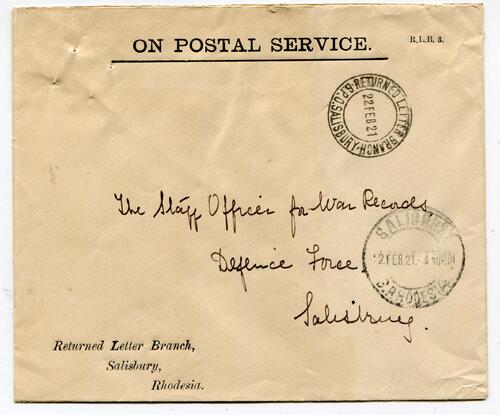 ON POSTAL SERVICE.
R.L.B. 3.
G.P.O. SALISBURY · RETURNED LETTER BRANCH
22 FEB 21
The Staff Officer for War Records
Defence Force,
Salisbury.
SALISBURY
FEB.21.
S.RHODESIA
Returned Letter Branch,
Salisbury,
Rhodesia.